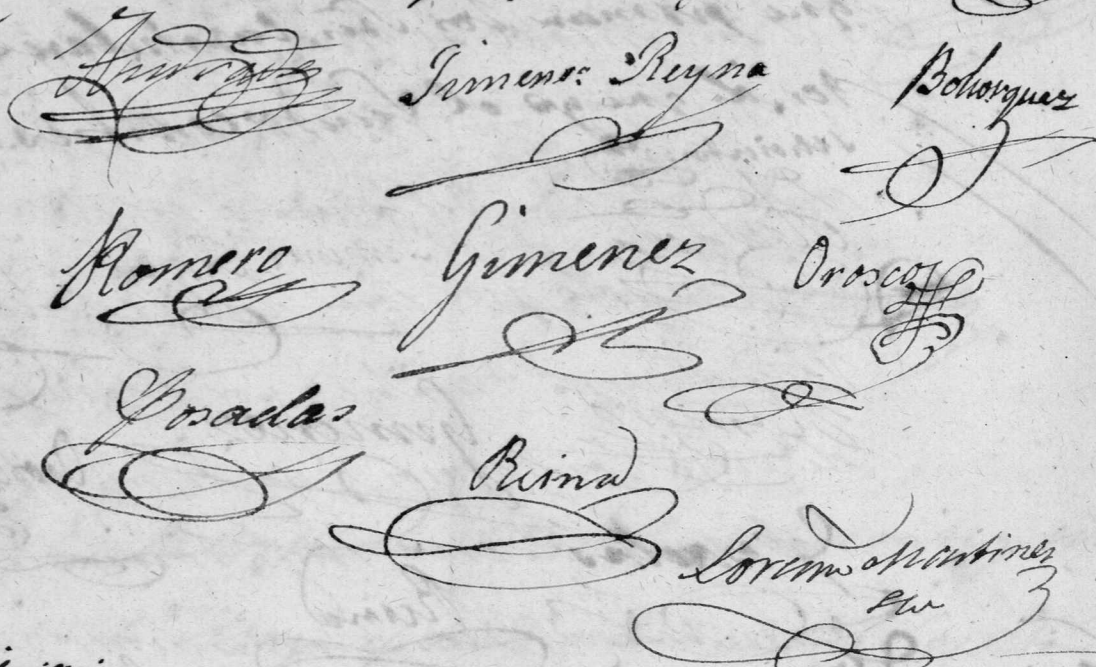 Andrade Gimenez Reyna Bohorquez
Romero Gimenez Orosco
Posadas
Reina
Lorenzo Martinez